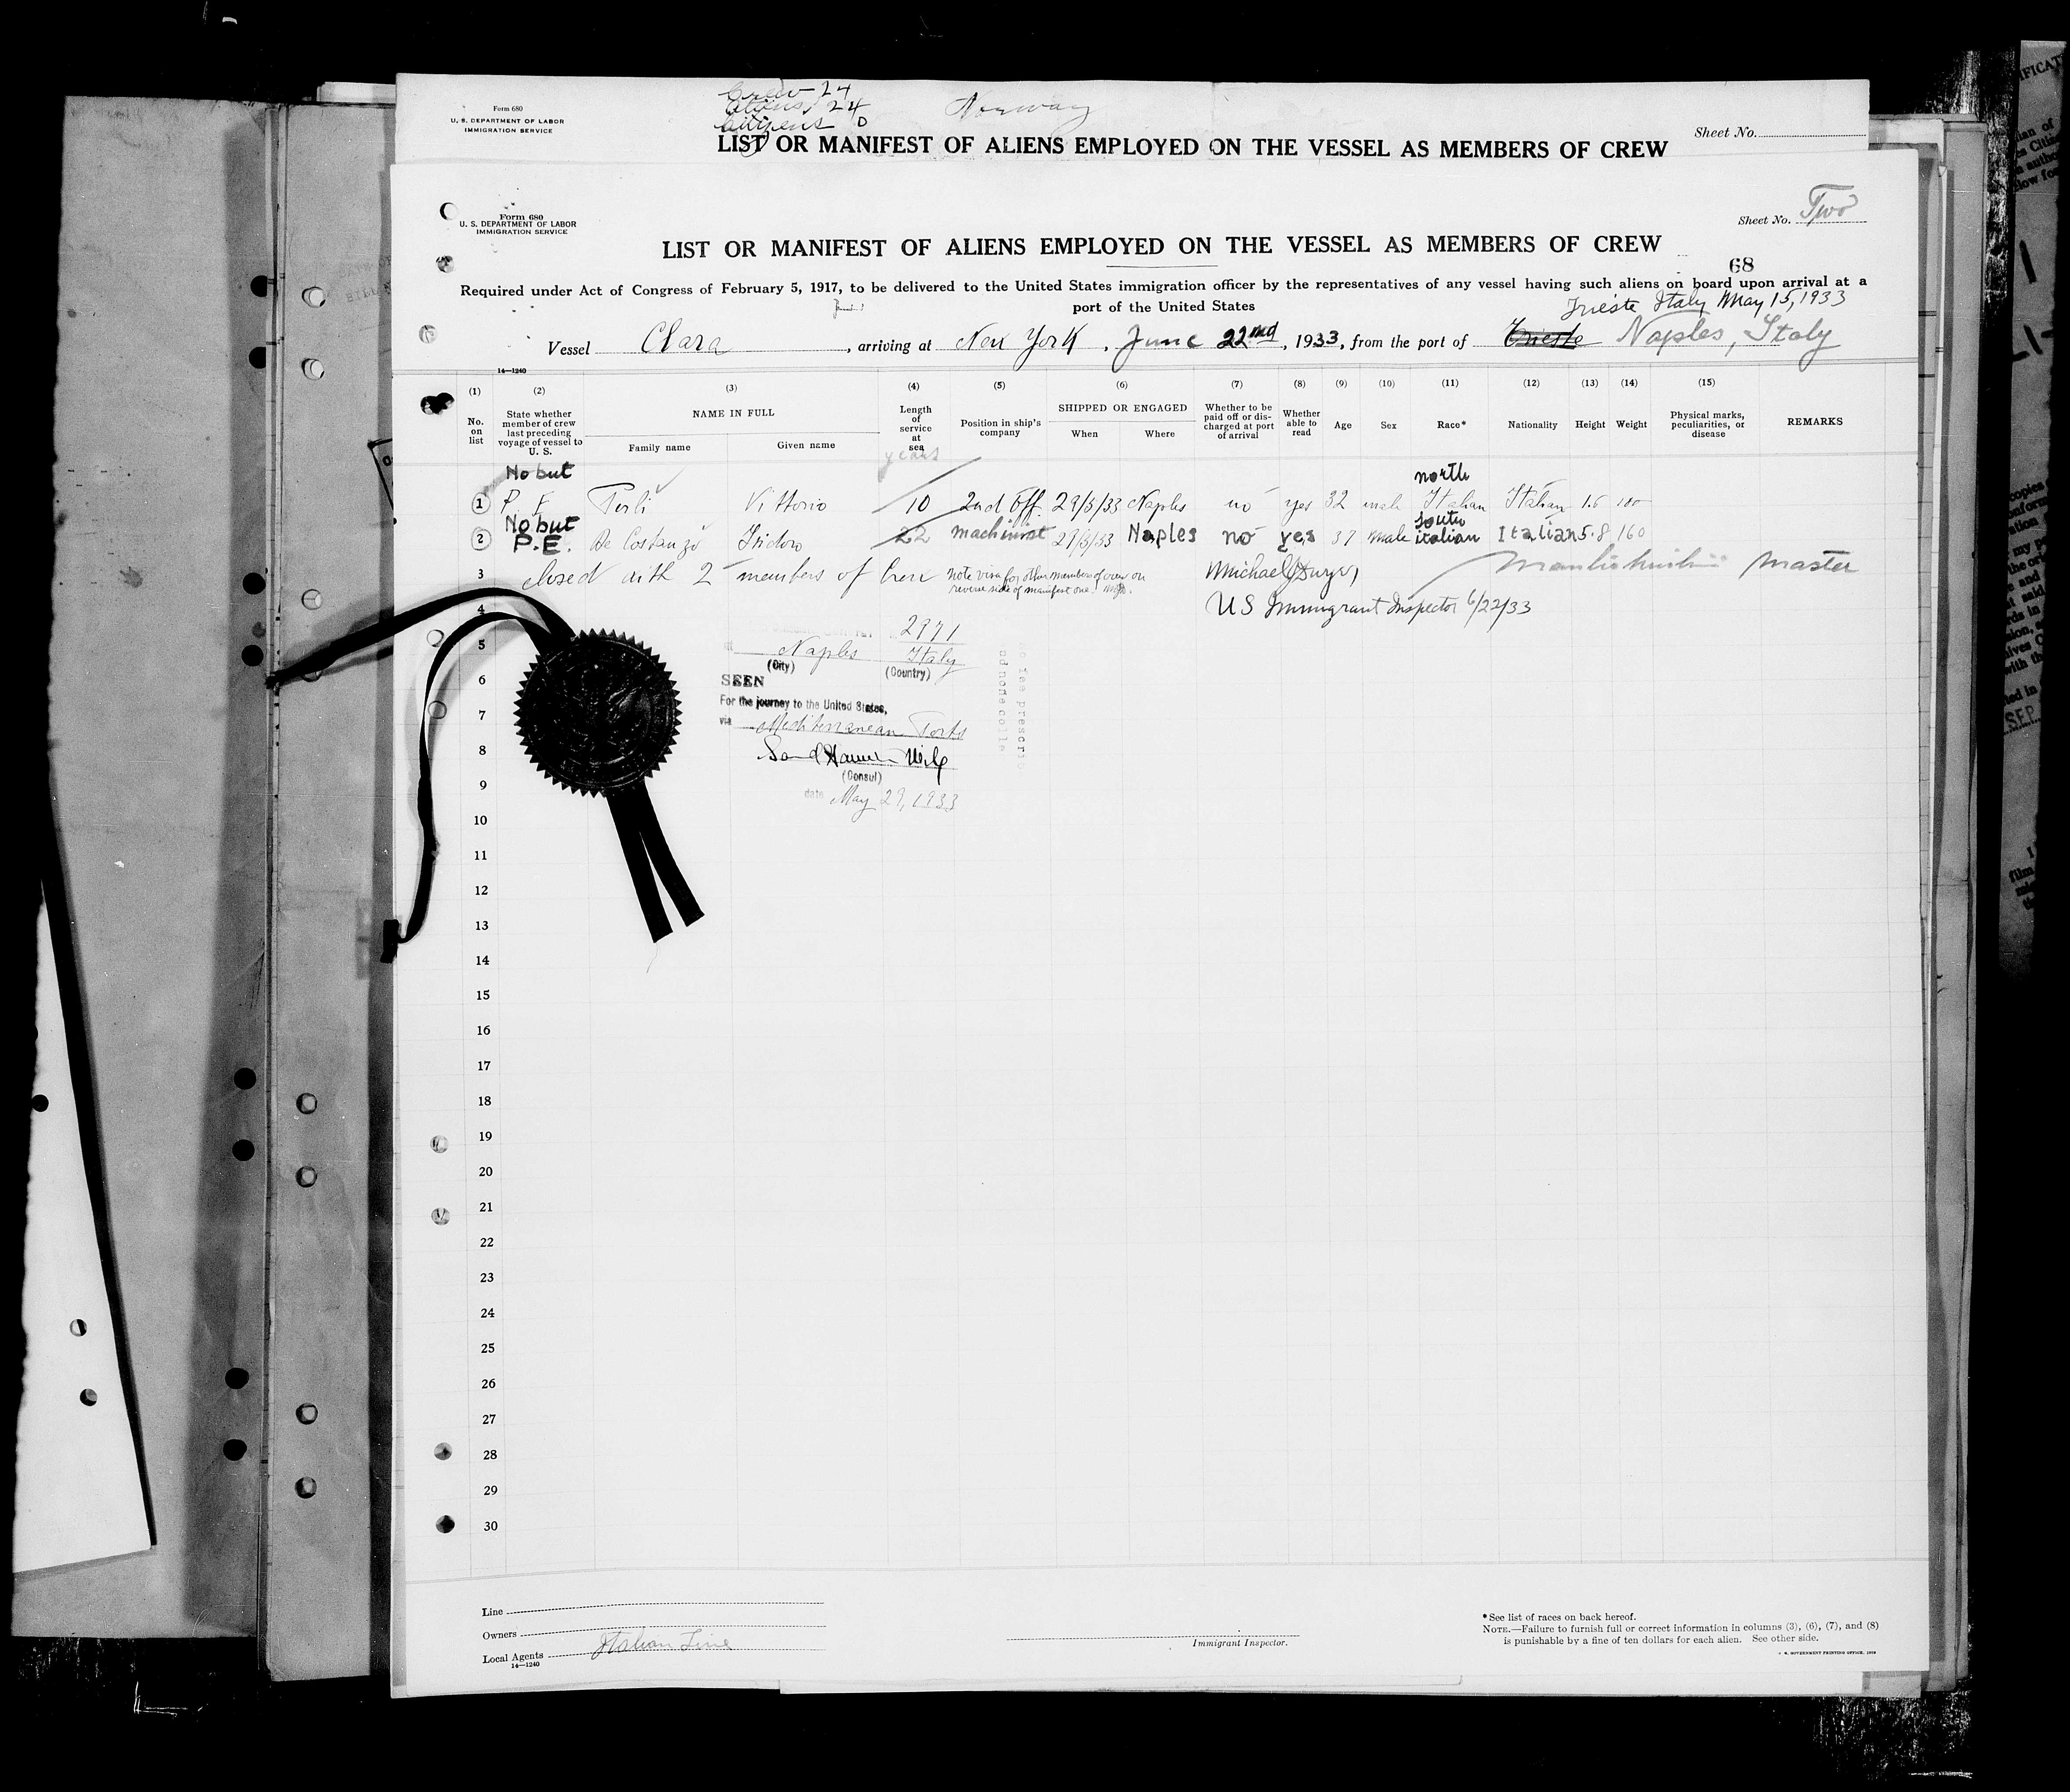 Form 680
U. S. DEPARTMENT OF LABOR
IMMIGRATION SERVICE
Crew 24
Aliens, 24
Citizens 0
Norway
Sheet No.
LIST OR MANIFEST OF ALIENS EMPLOYED ON THE VESSEL AS MEMBERS OF CREW
Form 680
U. S. DEPARTMENT OF LABOR
IMMIGRATION SERVICE
Sheet No. Two
LIST OR MANIFEST OF ALIENS EMPLOYED ON THE VESSEL AS MEMBERS OF CREW
68
Required under Act of Congress of February 5, 1917, to be delivered to the United States immigration officer by the representatives of any vessel having such aliens on board upon arrival at a
port of the United States
Trieste Italy May 15, 1933
Vessel Clara, arriving at New York, June 22nd, 1933, from the port of Trieste Naples, Italy
14—1240
(1) (2) (3) (4) (5) (6) (7) (8) (9) (10) (11) (12) (13) (14) (15)
No. on list State whether member of crew last preceding voyage of vessel to U. S. NAME IN FULL Family name Given name Length of service at sea years Position in ship's company SHIPPED OR ENGAGED When Where Whether to be paid off or discharged at port of arrival Whether able to read Age Sex Race* Nationality Height Weight Physical marks, peculiarities, or disease REMARKS
No but north
1 P. E. Perli Vittorio 10 2nd Off. 29/5/33 Naples no yes 32 male Italian Italian 1.6 180
No but south
2 P.E. De Costanzo Isidoro 22 machinist 29/5/33 Naples no yes 37 male italian Italian 5.8 160
3 closed with 2 members of Crew note visa for other members of crew on Michael J Dwyer master
reverse side of manifest one.
4 US Immigrant Inspector 6/22/33
2971
5
at Naples Italy
(City) (Country)
6 SEEN
For the journey to the United States,
7 via Mediterranean Ports
8
(Consul)
9 date May 29, 1933
No fee prescri
10
11
12
13
14
15
16
17
18
19
20
21
22
23
24
25
26
27
28
29
30
Line
Owners
Local Agents Italian Line
14—1240
Immigrant Inspector.
*See list of races on back hereof.
NOTE.—Failure to furnish full or correct information in columns (3), (6), (7), and (8)
is punishable by a fine of ten dollars for each alien. See other side.